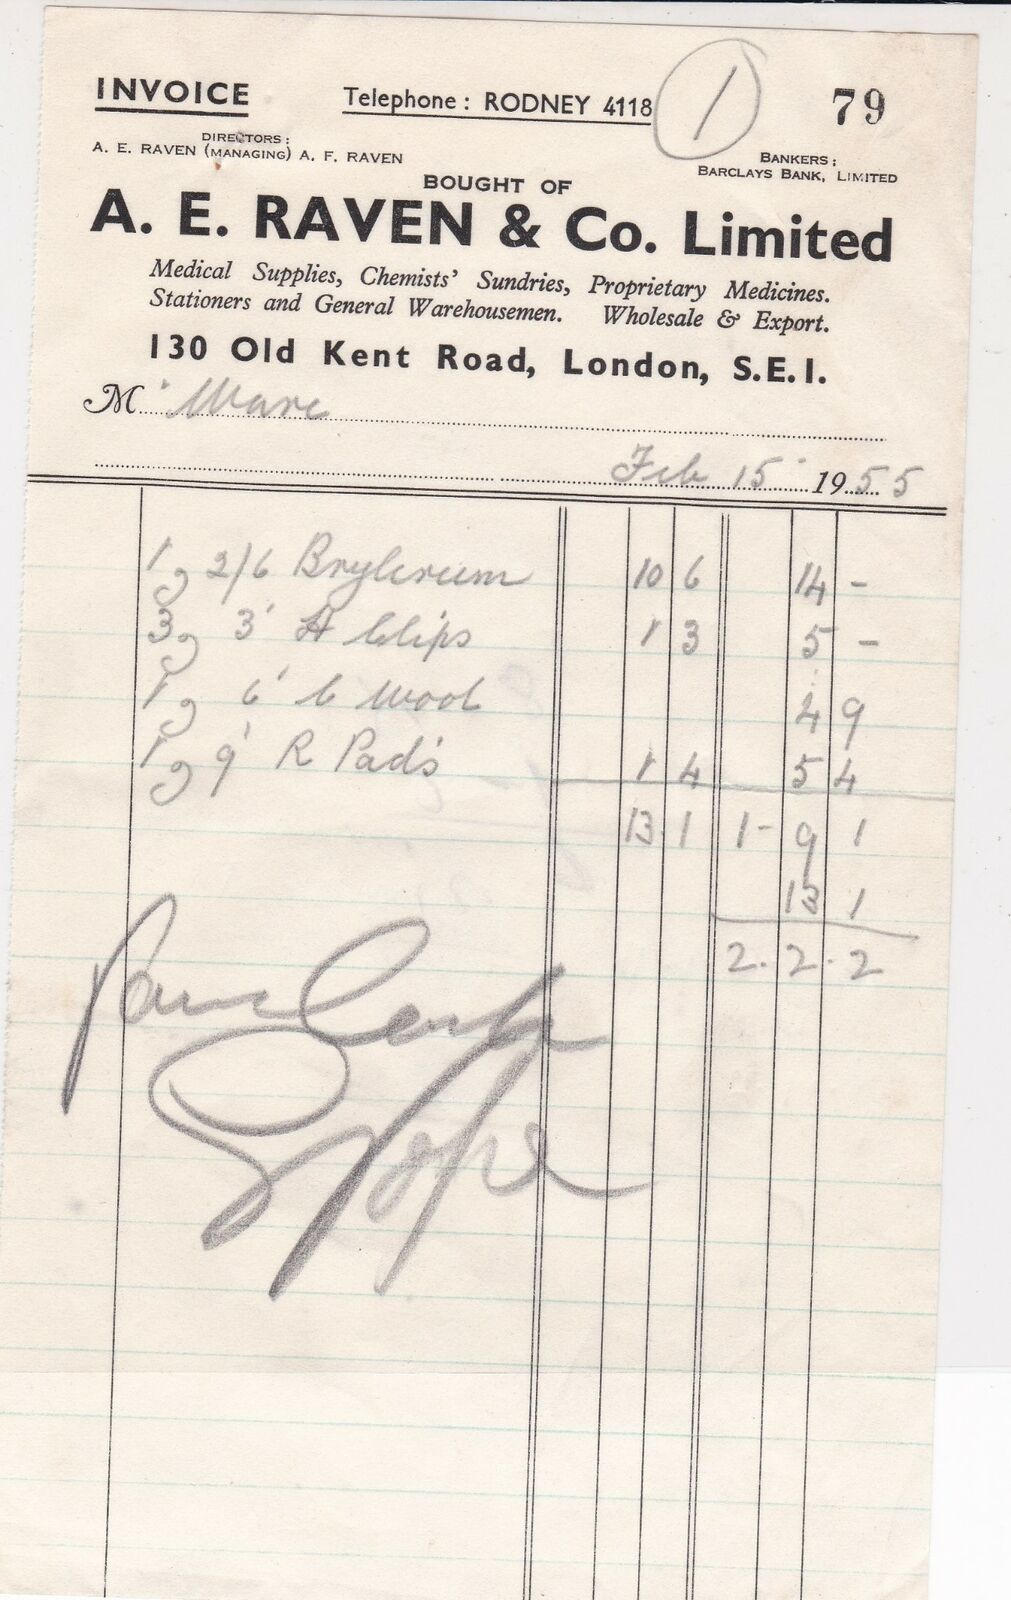 INVOICE Telephone: RODNEY 4118 1 79
DIRECTORS:
A. E. RAVEN (MANAGING) A. F. RAVEN
BANKERS:
BARCLAYS BANK, LIMITED
BOUGHT OF
A. E. RAVEN & Co. Limited
Medical Supplies, Chemists' Sundries, Proprietary Medicines.
Stationers and General Warehousemen. Wholesale & Export.
130 Old Kent Road, London, S.E.1.
M Ware
Feb 15 1955
1 2/6 Brylcreem 10 6 14 -
3 3' H Clips 1 3 5 -
1 6' C Wool 4 9
1 9' R Pads 1 4 5 4
13 1 1 - 9 1
13 1
2. 2. 2
Paid Cash